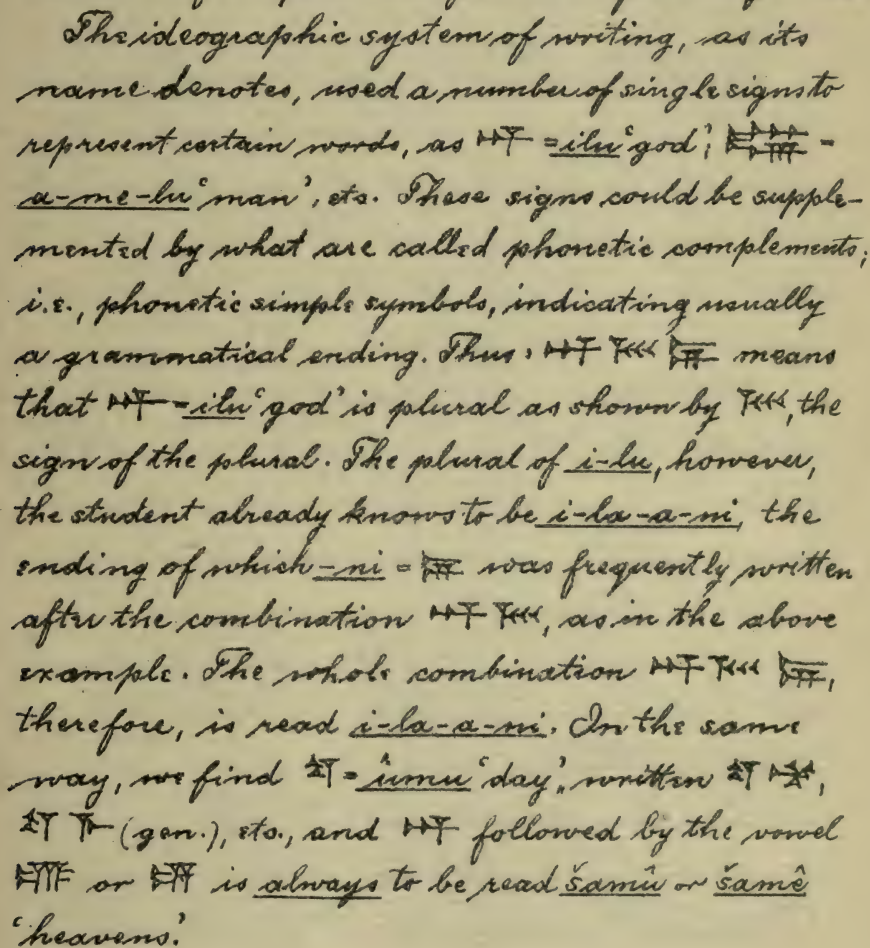 The ideographic system of writing, as its
name denotes, used a number of single signs to
represent certain words, as 𒀭 = ilu 'god'; 𒇽 =
a-me-lu 'man', etc. These signs could be supple-
mented by what are called phonetic complements;
i.e., phonetic simple symbols, indicating usually
a grammatical ending. Thus: 𒀭 𒎌 𒉌 means
that 𒀭 = ilu 'god' is plural as shown by 𒎌, the
sign of the plural. The plural of i-lu, however,
the student already knows to be i-la-a-ni, the
ending of which -ni = 𒉌 was frequently written
after the combination 𒀭 𒎌, as in the above
example. The whole combination 𒀭 𒎌 𒉌,
therefore, is read i-la-a-ni. In the same
way, we find 𒌓 = ûmu 'day', written 𒌓 𒈬,
𒌓 𒈨 (gen.), etc., and 𒀭 followed by the vowel
𒌑 or 𒂊 is always to be read šamû or šamê
'heavens.'